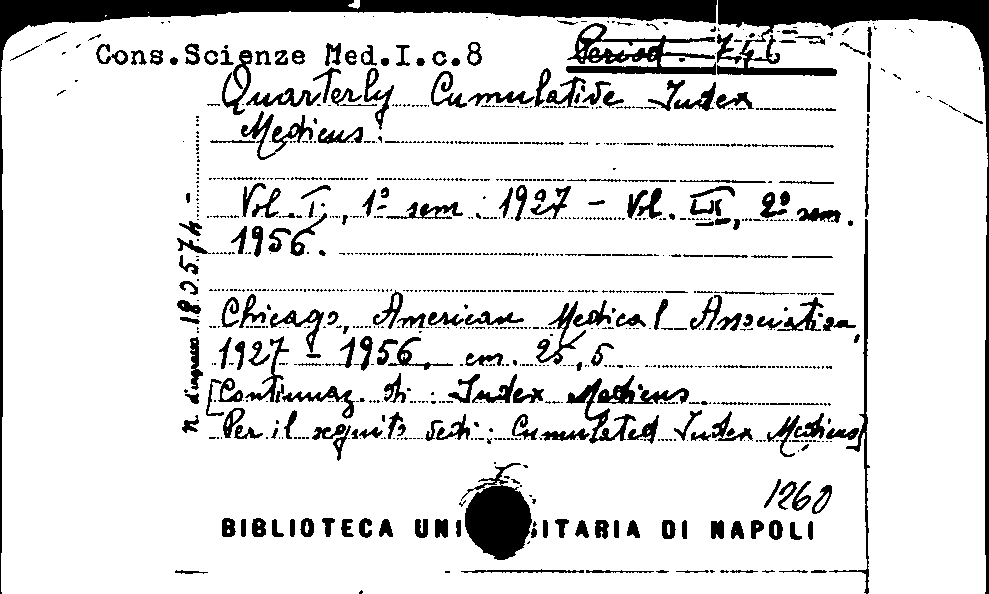 Cons.Scienze Med.I.c.8
Period. 746
Quarterly Cumulative Index
Medicus.
Vol. I, 1º sem. 1927 - Vol. LX, 2º sem.
1956.
n. d'ingresso 180574 -
Chicago, American Medical Association,
1927 - 1956. cm. 25,5.
[Continuaz. di: Index Medicus.
Per il seguito vedi: Cumulated Index Medicus]
1260
BIBLIOTECA UNI SITARIA DI NAPOLI